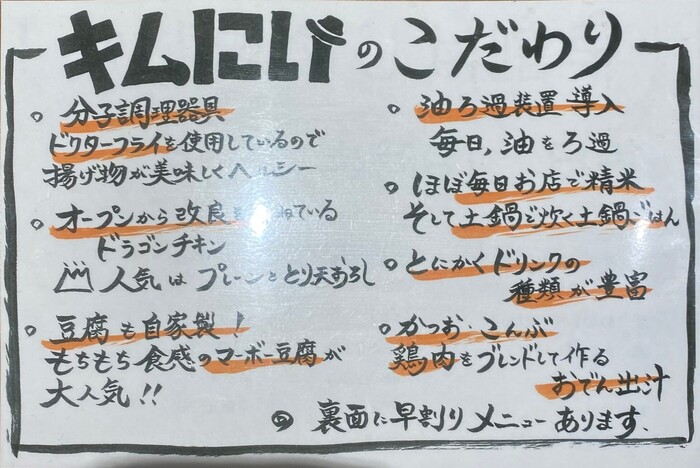 キムにいのこだわり
。分子調理器具
ドクターフライを使用しているので
揚げ物が美味しくヘルシー
。オープンから改良を ねている
ドラゴンチキン
人気はプレーンととり天おろし
。豆腐も自家製!
もちもち食感のマーボー豆腐が
大人気!!
。油ろ過装置導入
毎日,油をろ過
。ほぼ毎日お店で精米
そして土鍋で炊く土鍋ごはん
。とにかくドリンクの
種類が豊富
。かつお・こんぶ
鶏肉をブレンドして作る
おでん出汁
裏面に早割りメニューあります.